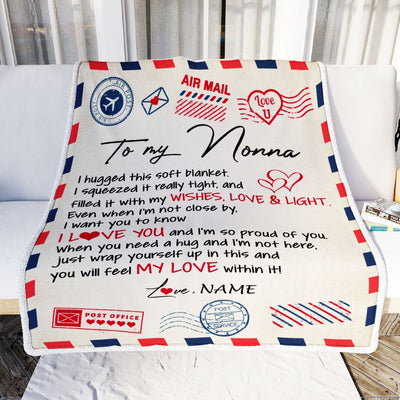 AIR MAIL
Love
U
To my Nonna
I hugged this soft blanket.
I squeezed it really tight, and
filled it with my WISHES, LOVE & LIGHT.
Even when I'm not close by.
I want you to know
I L❤VE YOU and I'm so proud of you.
When you need a hug and I'm not here,
just wrap yourself up in this and
you will feel MY LOVE within it!
Love, NAME
POST OFFICE
POST
SERVICE